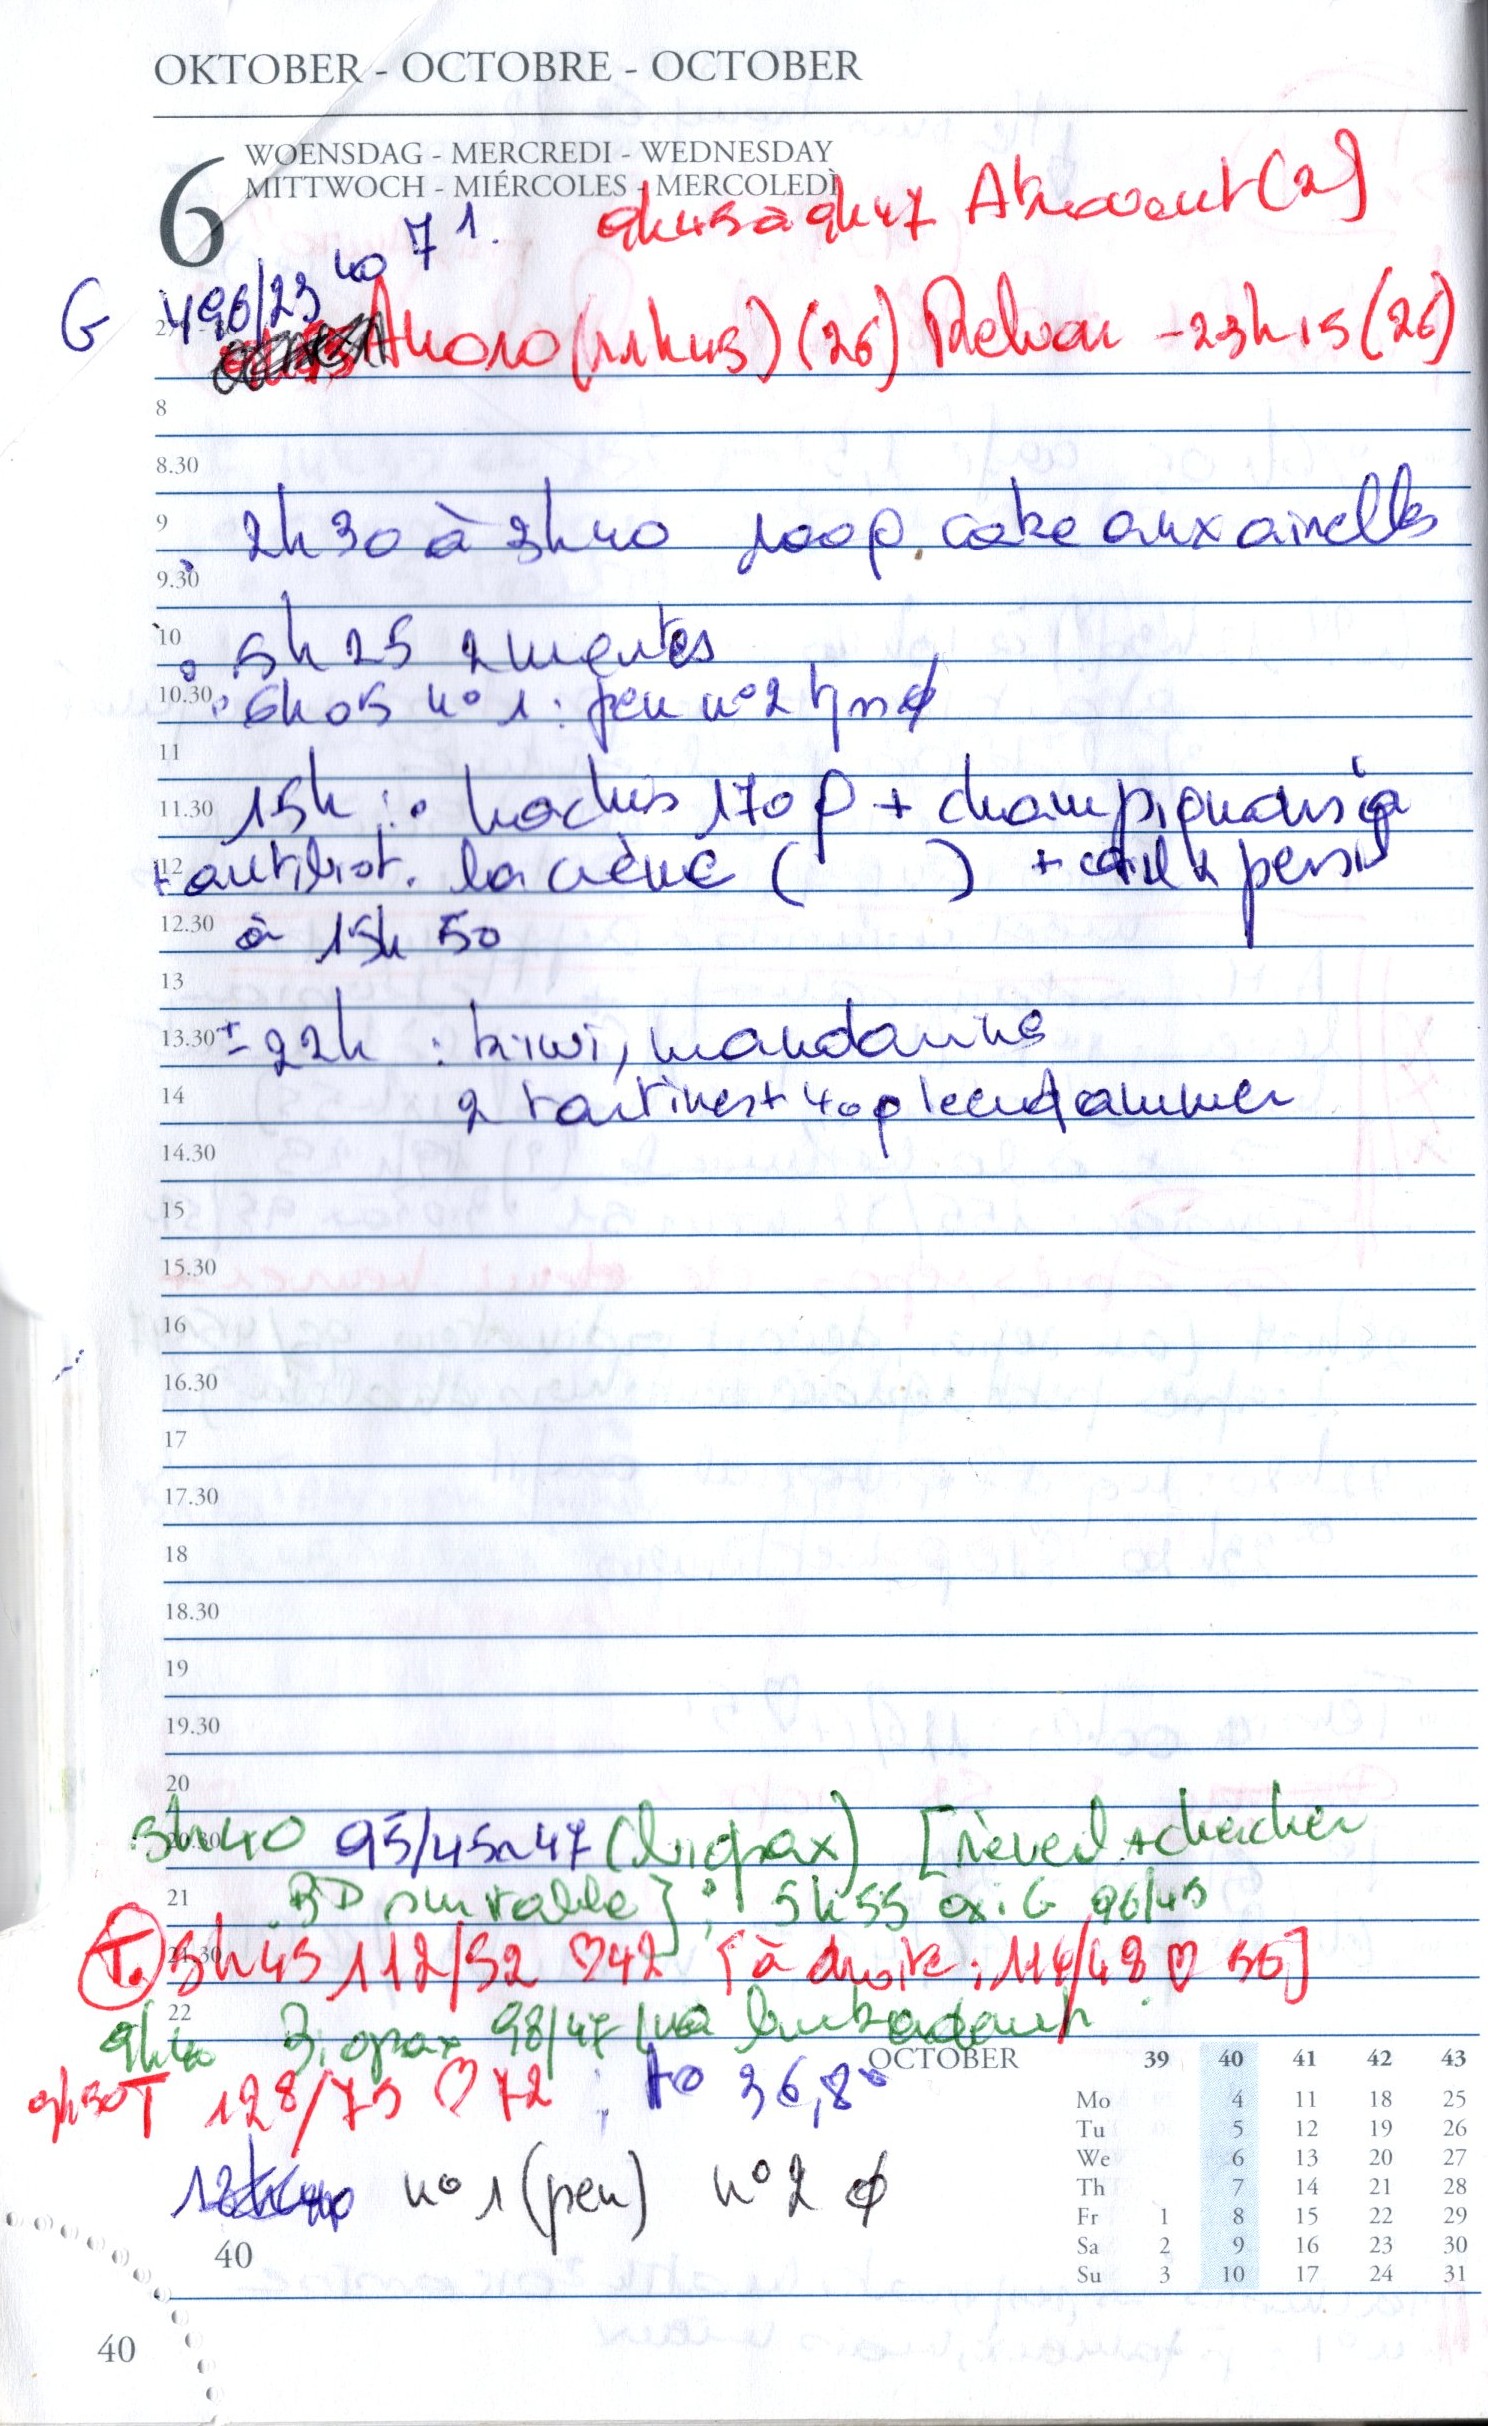 OKTOBER - OCTOBRE - OCTOBER
6
WOENSDAG - MERCREDI - WEDNESDAY
MITTWOCH - MIÉRCOLES - MERCOLEDÌ
9h45 à 9h47 (2)
7 1.
G 496/23h40
(11h45) (26) - 23h15 (26)
8
8.30
9
2h30 à 3h40 100g. cake aux airelles
9.30
10
5h25 2 mentes
10.30
6h05 n° 1 : peu n°2 ø
11
11.30
15h : hachis 170g + champignons à
12
+ antibiot. la crème ( ) + persil
12.30
à 15h50
13
13.30
± 22h : kiwi, mandarine
14
2 tartines + 40g leerdammer
14.30
15
15.30
16
16.30
17
17.30
18
18.30
19
19.30
20
20.30
5h40 95/45 à 47 [réveil + chercher
21
BD sur table] ; 5h55 oxi G 96/45
21.30
T. 5h45 112/52 ♡42 [à droite : 114/48 ♡ 56]
22
9h40 98/47
9h50 T 128/75 ♡ 72 ; t° 36,8°
n° 1 (peu) n° 2 ø
40
OCTOBER 39 40 41 42 43
Mo 4 11 18 25
Tu 5 12 19 26
We 6 13 20 27
Th 7 14 21 28
Fr 1 8 15 22 29
Sa 2 9 16 23 30
Su 3 10 17 24 31
40